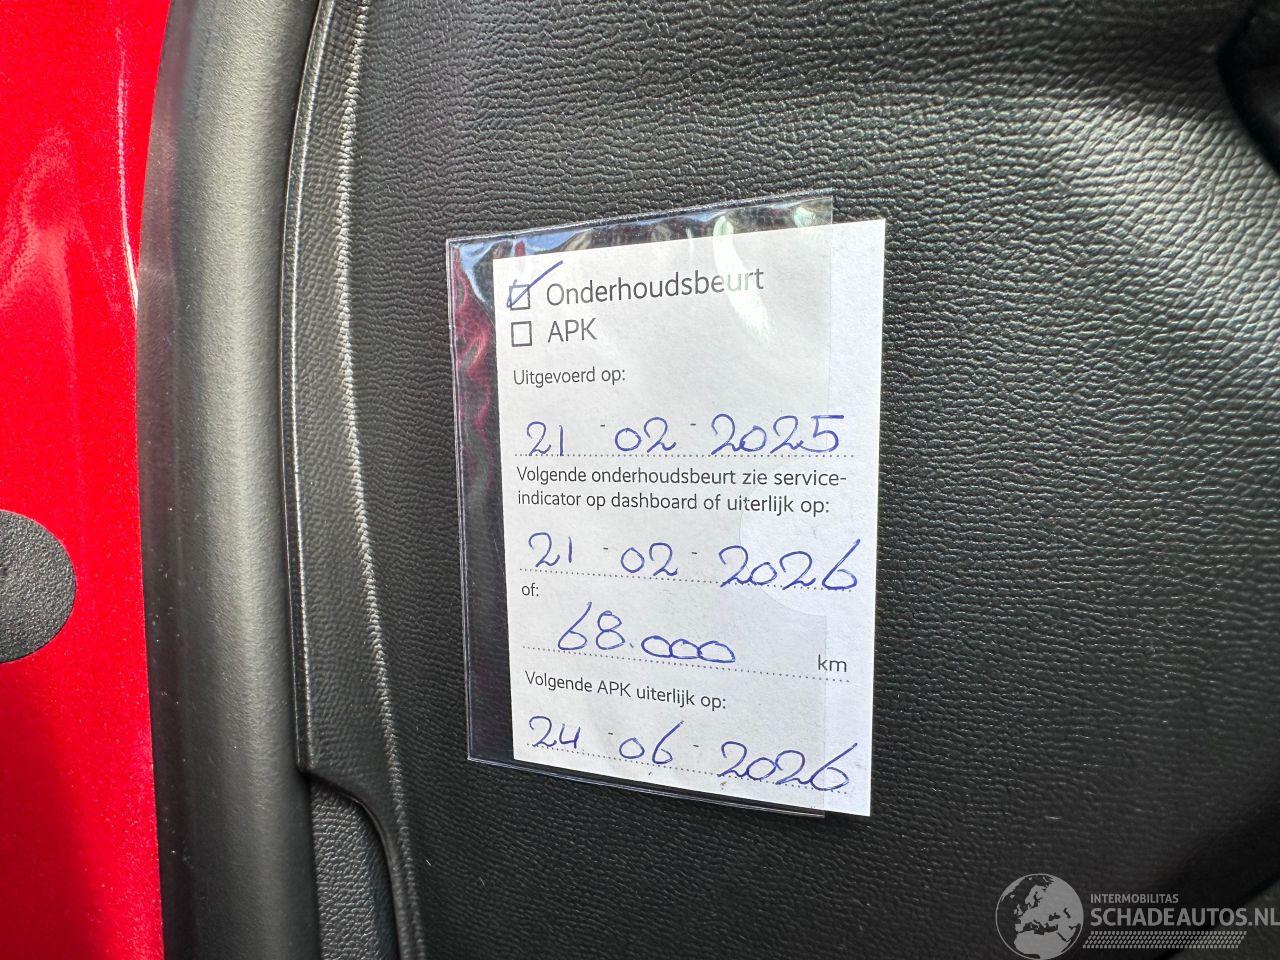 Onderhoudsbeurt
APK
Uitgevoerd op:
21 - 02 - 2025
Volgende onderhoudsbeurt zie service-
indicator op dashboard of uiterlijk op:
21 - 02 - 2026
of:
68.000 km
Volgende APK uiterlijk op:
24 - 06 - 2026
INTERMOBILITAS
SCHADEAUTOS.NL